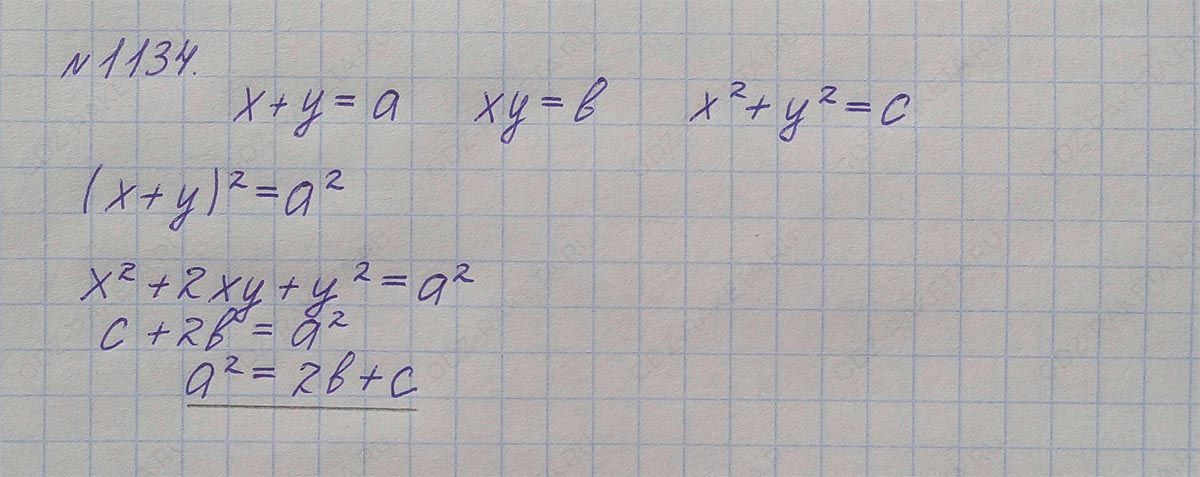 №1134.
x+y=a xy=b x²+y²=c
(x+y)²=a²
x²+2xy+y²=a²
c+2b=a²
a²=2b+c